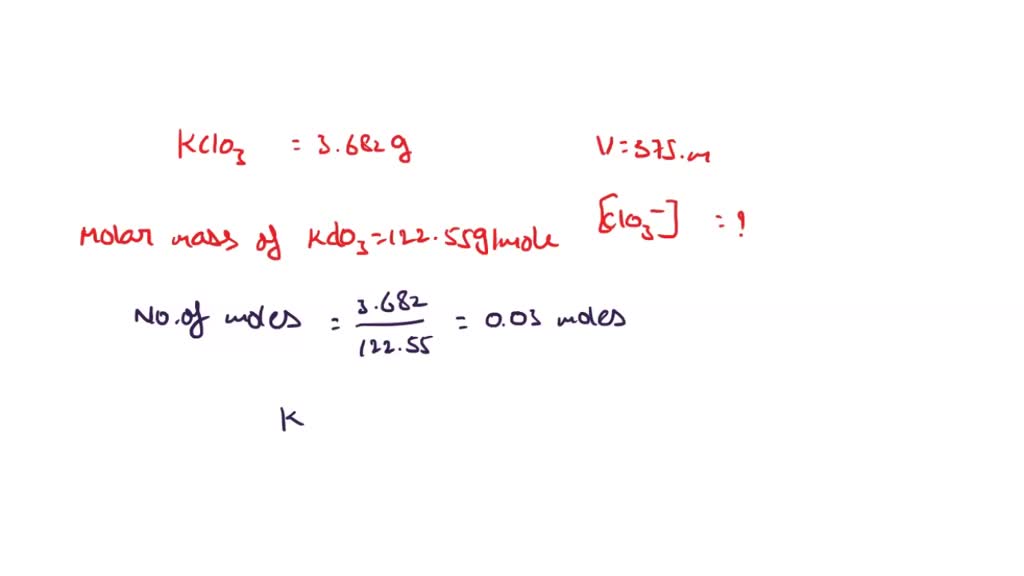 KClO3 = 3.682 g V = 375.m
Molar mass of KClO3 = 122.55 g/mole [ClO3-] = ?
No. of moles = 3.682 / 122.55 = 0.03 moles
K